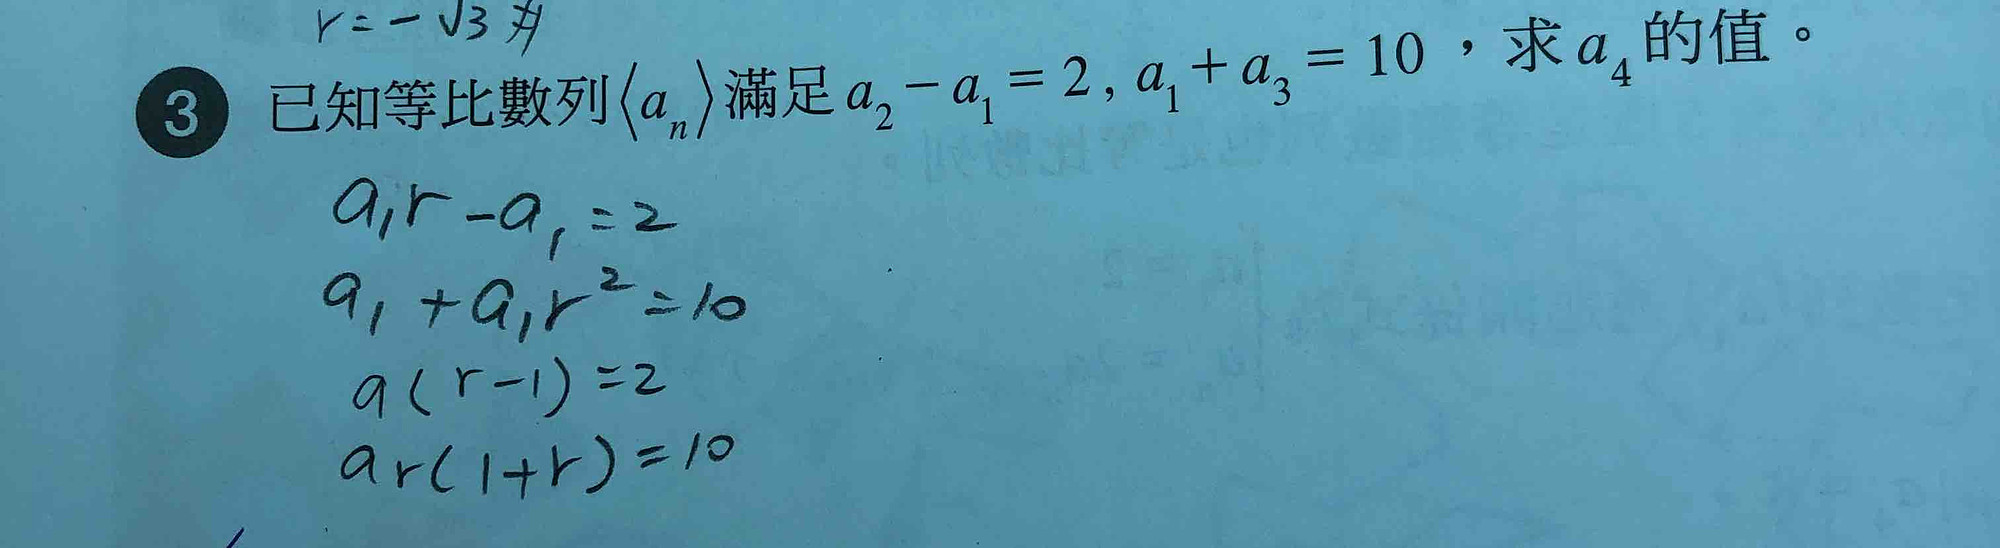 r=-√3 #
3 已知等比數列⟨aₙ⟩滿足 a₂-a₁=2, a₁+a₃=10，求 a₄ 的值。
a₁r-a₁=2
a₁+a₁r²=10
a(r-1)=2
ar(1+r)=10